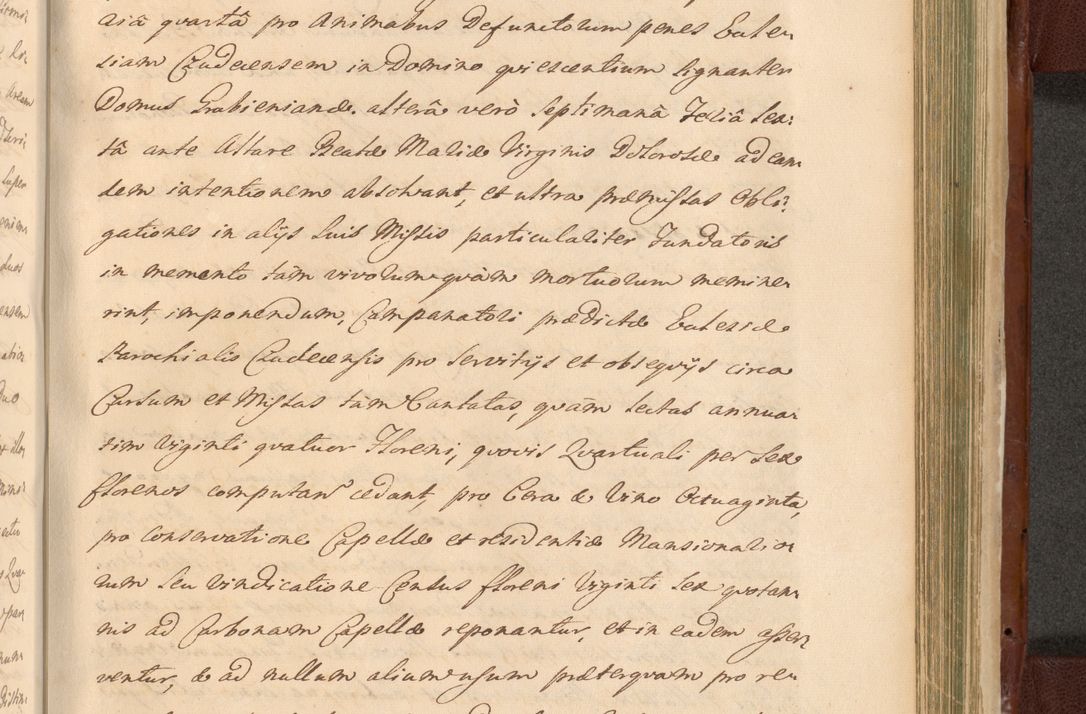 riâ quartâ pro Animabus Defunctorum penes Eccle-
siam Czudecensem in Domino quiescentium signanter
Domus Grabieniandæ. alterâ verò Septimanâ Feriâ Sex:
tâ ante Altare Beatæ Mariæ Virginis Dolorosæ ad ean-
dem intentionem absolvant, et ultra præmissas Obli:
gationes in alijs suis Missis particulariter Fundatoris
in memento tàm vivorum quàm mortuorum memine-
rint, imponendum, Campanatori prædictæ Ecclesiæ
Parochialis Czudecensis pro servitijs et obsequijs circa
Cursum et Missas tàm Cantatas, quàm lectas annua-
tim Viginti quatuor Floreni, quovis Quartuali per Sex
florenos computan. cedant, pro Cera & Vino Octuaginta,
pro conservatione Capellæ et residentiæ Mansionario-
rum seu vindicatione Census floreni Viginti Sex quotan-
nis ad Carbonam Capellæ reponantur, et in eadem asser-
ventur, & ad nullum alium usum præterquam pro re-